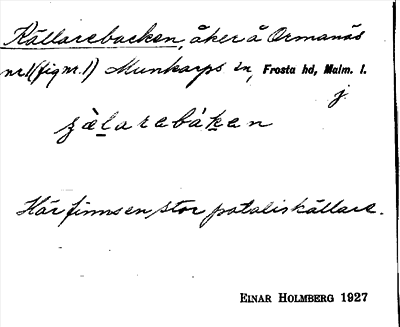 Källarebacken, åker å Ormanäs
nr1 (fig nr.1) Munkarps sn, Frosta hd, Malm. l.
j.
Här finns en stor potatiskällare.
EINAR HOLMBERG 1927